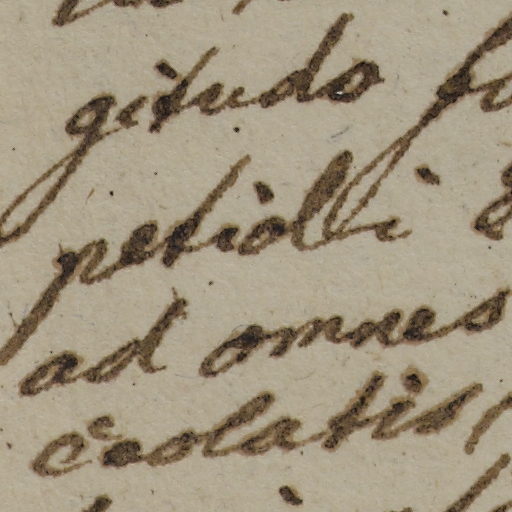 gitudo
petiolli
ad omnes
ceolatis,